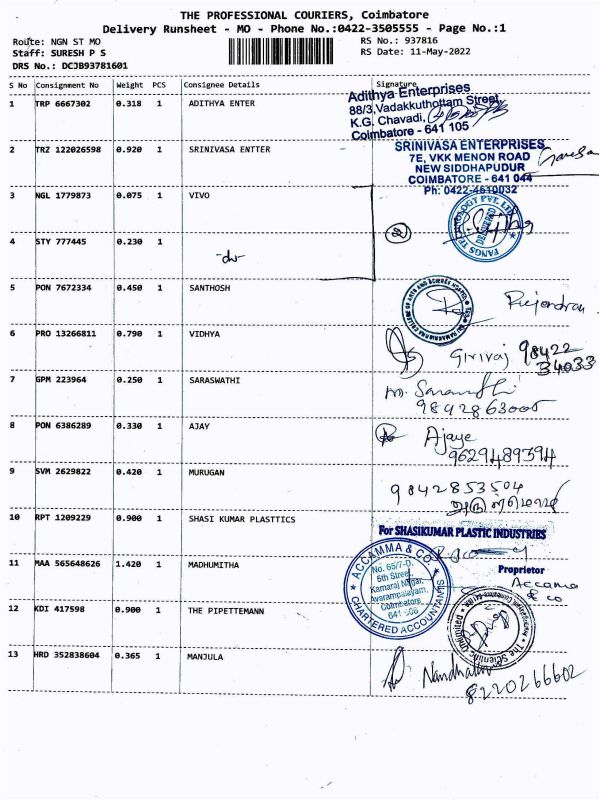 THE PROFESSIONAL COURIERS, Coimbatore
Delivery Runsheet - MO - Phone No.:0422-3505555 - Page No.:1
Route: NGN ST MO RS No.: 937816
Staff: SURESH P S RS Date: 11-May-2022
DRS No.: DCJB93781601
S No Consignment No Weight PCS Consignee Details Signature
1 TRP 6667302 0.318 1 ADITHYA ENTER
Adithya Enterprises
88/3,Vadakkuthottam Street,
K.G. Chavadi,
Coimbatore - 641 105
2 TRZ 122026598 0.920 1 SRINIVASA ENTTER
SRINIVASA ENTERPRISES
7E, VKK MENON ROAD
NEW SIDDHAPUDUR
COIMBATORE - 641 044
Ph: 0422-4610032
3 NGL 1779873 0.075 1 VIVO
4 STY 777445 0.230 1
FANGS TECHNOLOGY PVT. LTD.
5 PON 7672334 0.450 1 SANTHOSH
Rajendran
6 PRO 13266811 0.790 1 VIDHYA
Giriraj 98422
34033
7 GPM 223964 0.250 1 SARASWATHI
9892863005
8 PON 6386289 0.330 1 AJAY
Ajaye
9629489594
9 SVM 2629822 0.420 1 MURUGAN
9842853504
10 RPT 1209229 0.900 1 SHASI KUMAR PLASTTICS
For SHASIKUMAR PLASTIC INDUSTRIES
Proprietor
11 MAA 565648626 1.420 1 MADHUMITHA
ACCAMMA & CO.
No. 65/7-D,
5th Street,
Kamaraj Nagar,
Avarampalayam,
Coimbatore
CHARTERED ACCOUNTANTS
Accama
& co
12 KDI 417598 0.900 1 THE PIPETTEMANN
13 HRD 352838604 0.365 1 MANJULA
8220266602